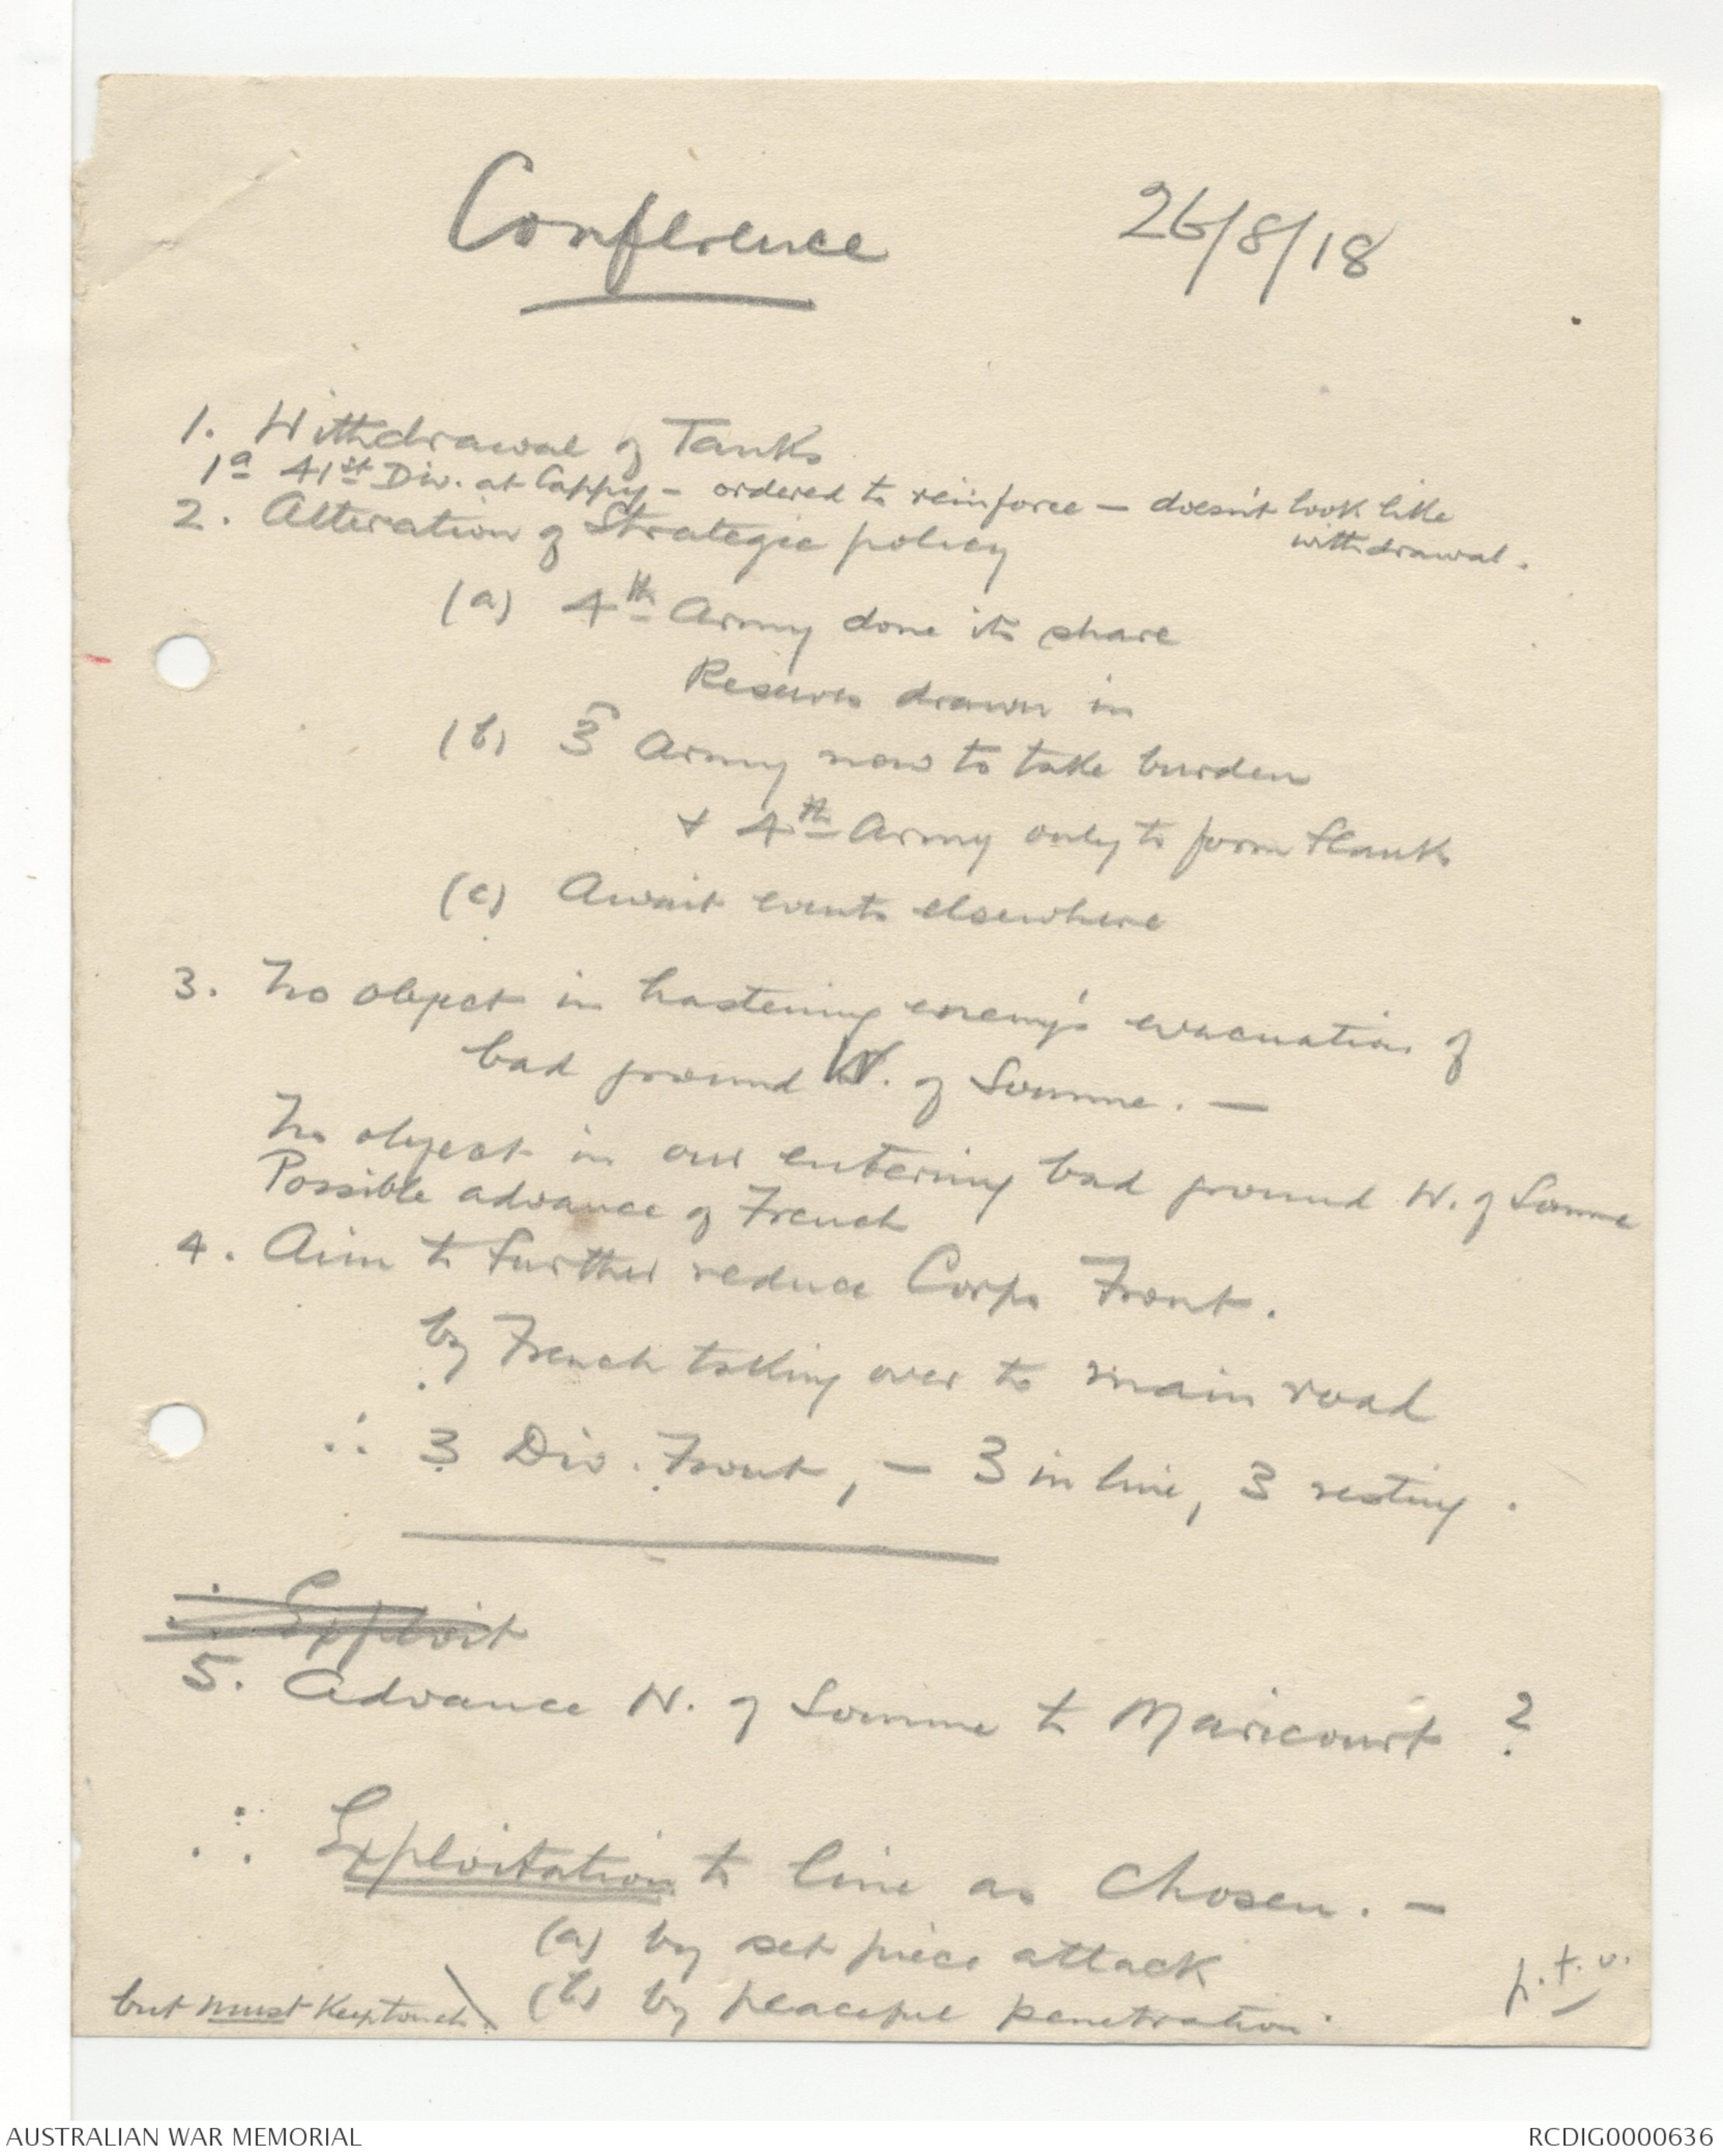 Conference 26/8/18
1. Withdrawal of Tanks
1a 41st Div. at Cappy - ordered to reinforce - doesn't look like
withdrawal.
2. Alteration of Strategic policy
(a) 4th Army done its share
Reserves drawn in
(b) 3 Army now to take burden
& 4th Army only to form flank
(c) Await events elsewhere
3. No object in hastening enemy's evacuation of
bad ground W. of Somme. -
No object in our entering bad ground W. of Somme
Possible advance of French
4. Aim to further reduce Corps Front.
by French taking over to main road
∴ 3 Div. Front, - 3 in line, 3 resting.
∴ Exploit
5. Advance N. of Somme to Maricourt ?
∴ Exploitation to line as chosen. -
(a) by set piece attack
(b) by peaceful penetration.
but must keep touch
p.t.o.
AUSTRALIAN WAR MEMORIAL RCDIG0000636